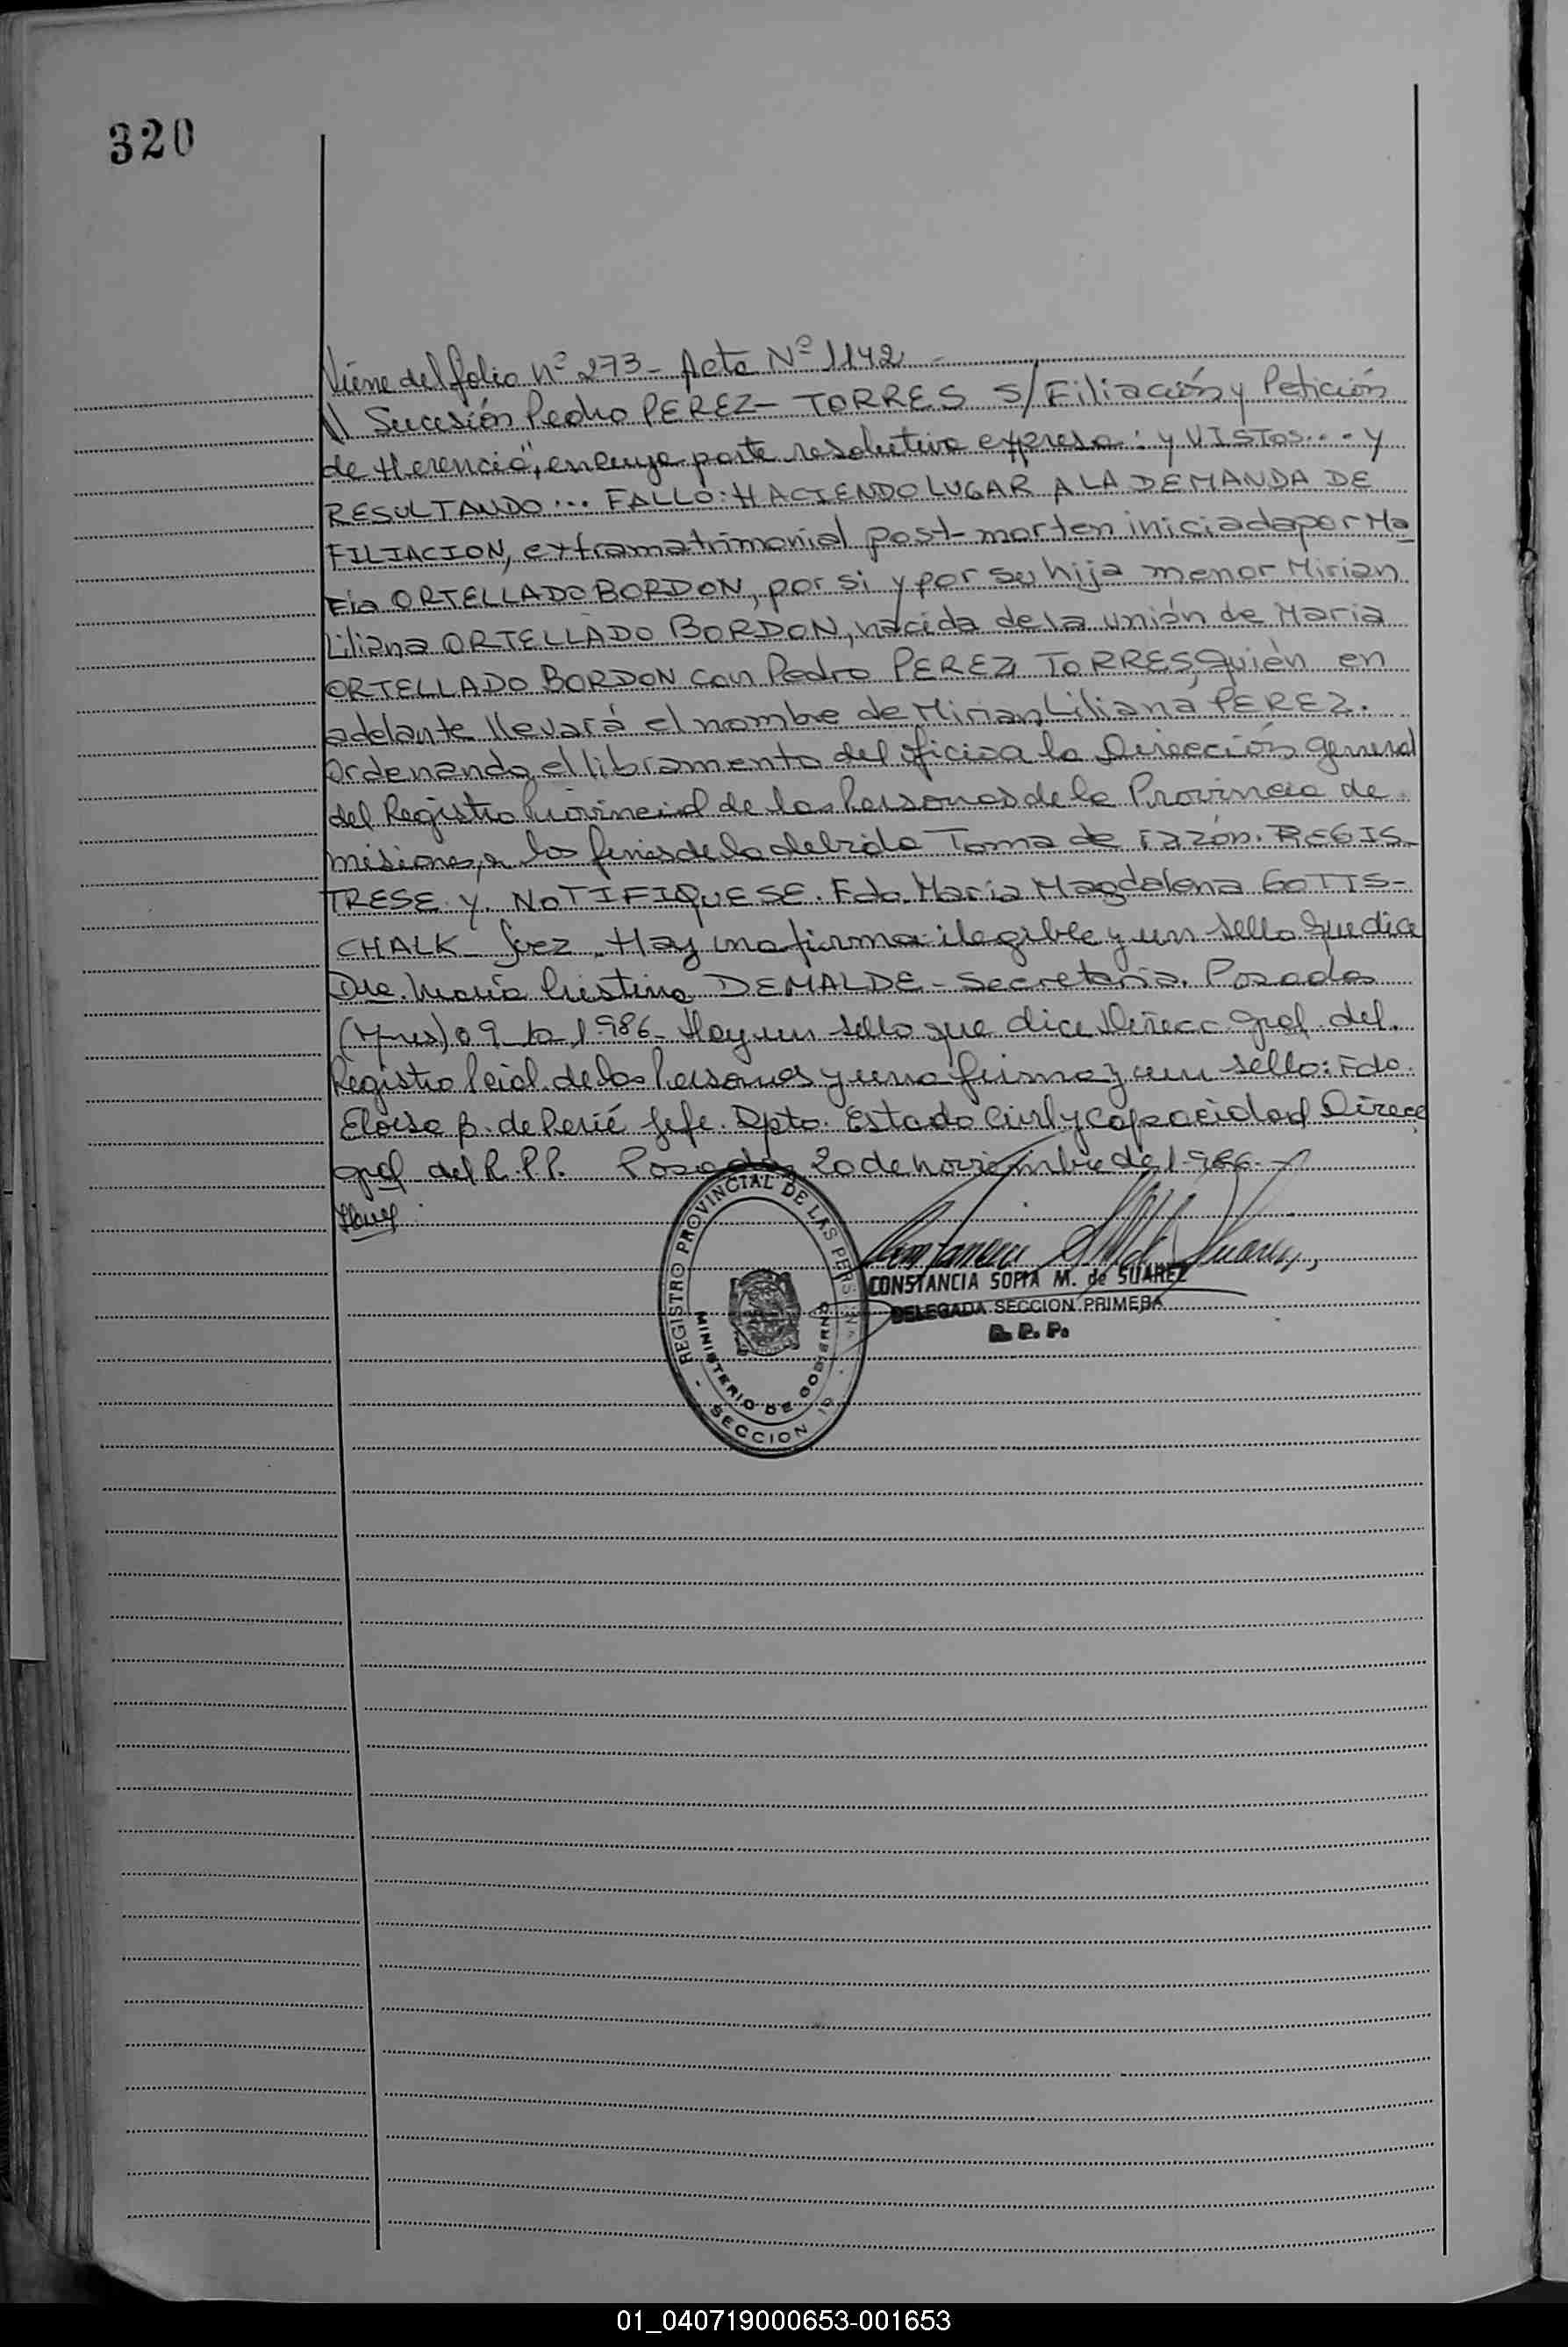 320
Viene del folio Nº 273 - Acta Nº 1142 -
\\ Sucesión Pedro PEREZ - TORRES S/ Filiación y Petición
de Herencia", en cuya parte resolutiva expresa: y VISTOS.... y
RESULTANDO... FALLO: HACIENDO LUGAR A LA DEMANDA DE
FILIACION, extramatrimonial post-morten iniciada por Ma
ria ORTELLADO BORDON, por si y por su hija menor Mirian
Liliana ORTELLADO BORDON, nacida de la unión de Maria
ORTELLADO BORDON con Pedro PEREZ TORRES, quién en
adelante llevará el nombre de Mirian Liliana PEREZ.
Ordenando el libramento del oficio a la Dirección General
del Registro Provincial de las Personas de la Provincia de
misiones, a los fines de la debida Toma de razón. REGIS-
TRESE y NOTIFIQUESE. Fdo. Maria Magdalena GOTTS-
CHALK - Juez. Hay una firma ilegible y un sello que dice
Dra. María Cristina DEMALDE - Secretaria. Posadas
(Mnes) 09-10-1986 - Hay un sello que dice Direcc Gral del
Registro Pcial de las Personas y una firma y un sello: Fdo.
Eloisa B. de Jefe. Dpto. Estado Civil y Capacidad Direcc
gral del R.P.P. Posadas, 20 de noviembre de 1.986. -
REGISTRO PROVINCIAL DE LAS PERSONAS
MINISTERIO DE GOBIERNO
SECCION 1º
CONSTANCIA SOFIA M. de SUAREZ
DELEGADA SECCION PRIMERA
R. P. P.
01_040719000653-001653